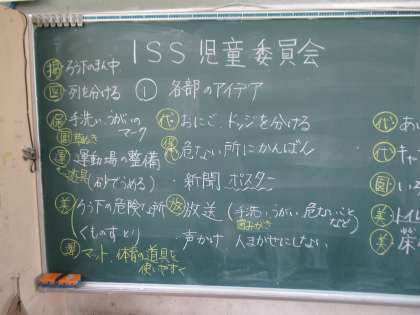 ISS 児童委員会
掲 ろう下のまん中
図 列を分ける
① 各部のアイデア
保 手洗い、うがいの
マーク
歯みがき
運 運動場の整備
道具(砂でうめる)
美 ろう下の危険な所
(くものすとり)
運 マット、体育の道具を
使いやすく
代 おにご、ドッジを分ける
保 危ない所にかんばん
・新聞 ポスター
放 放送(手洗い、うがい、危ないこと
歯みがき など)
・声かけ 人まかせにしない
代 あい
代 キャ
図
美 トイレ
美 床